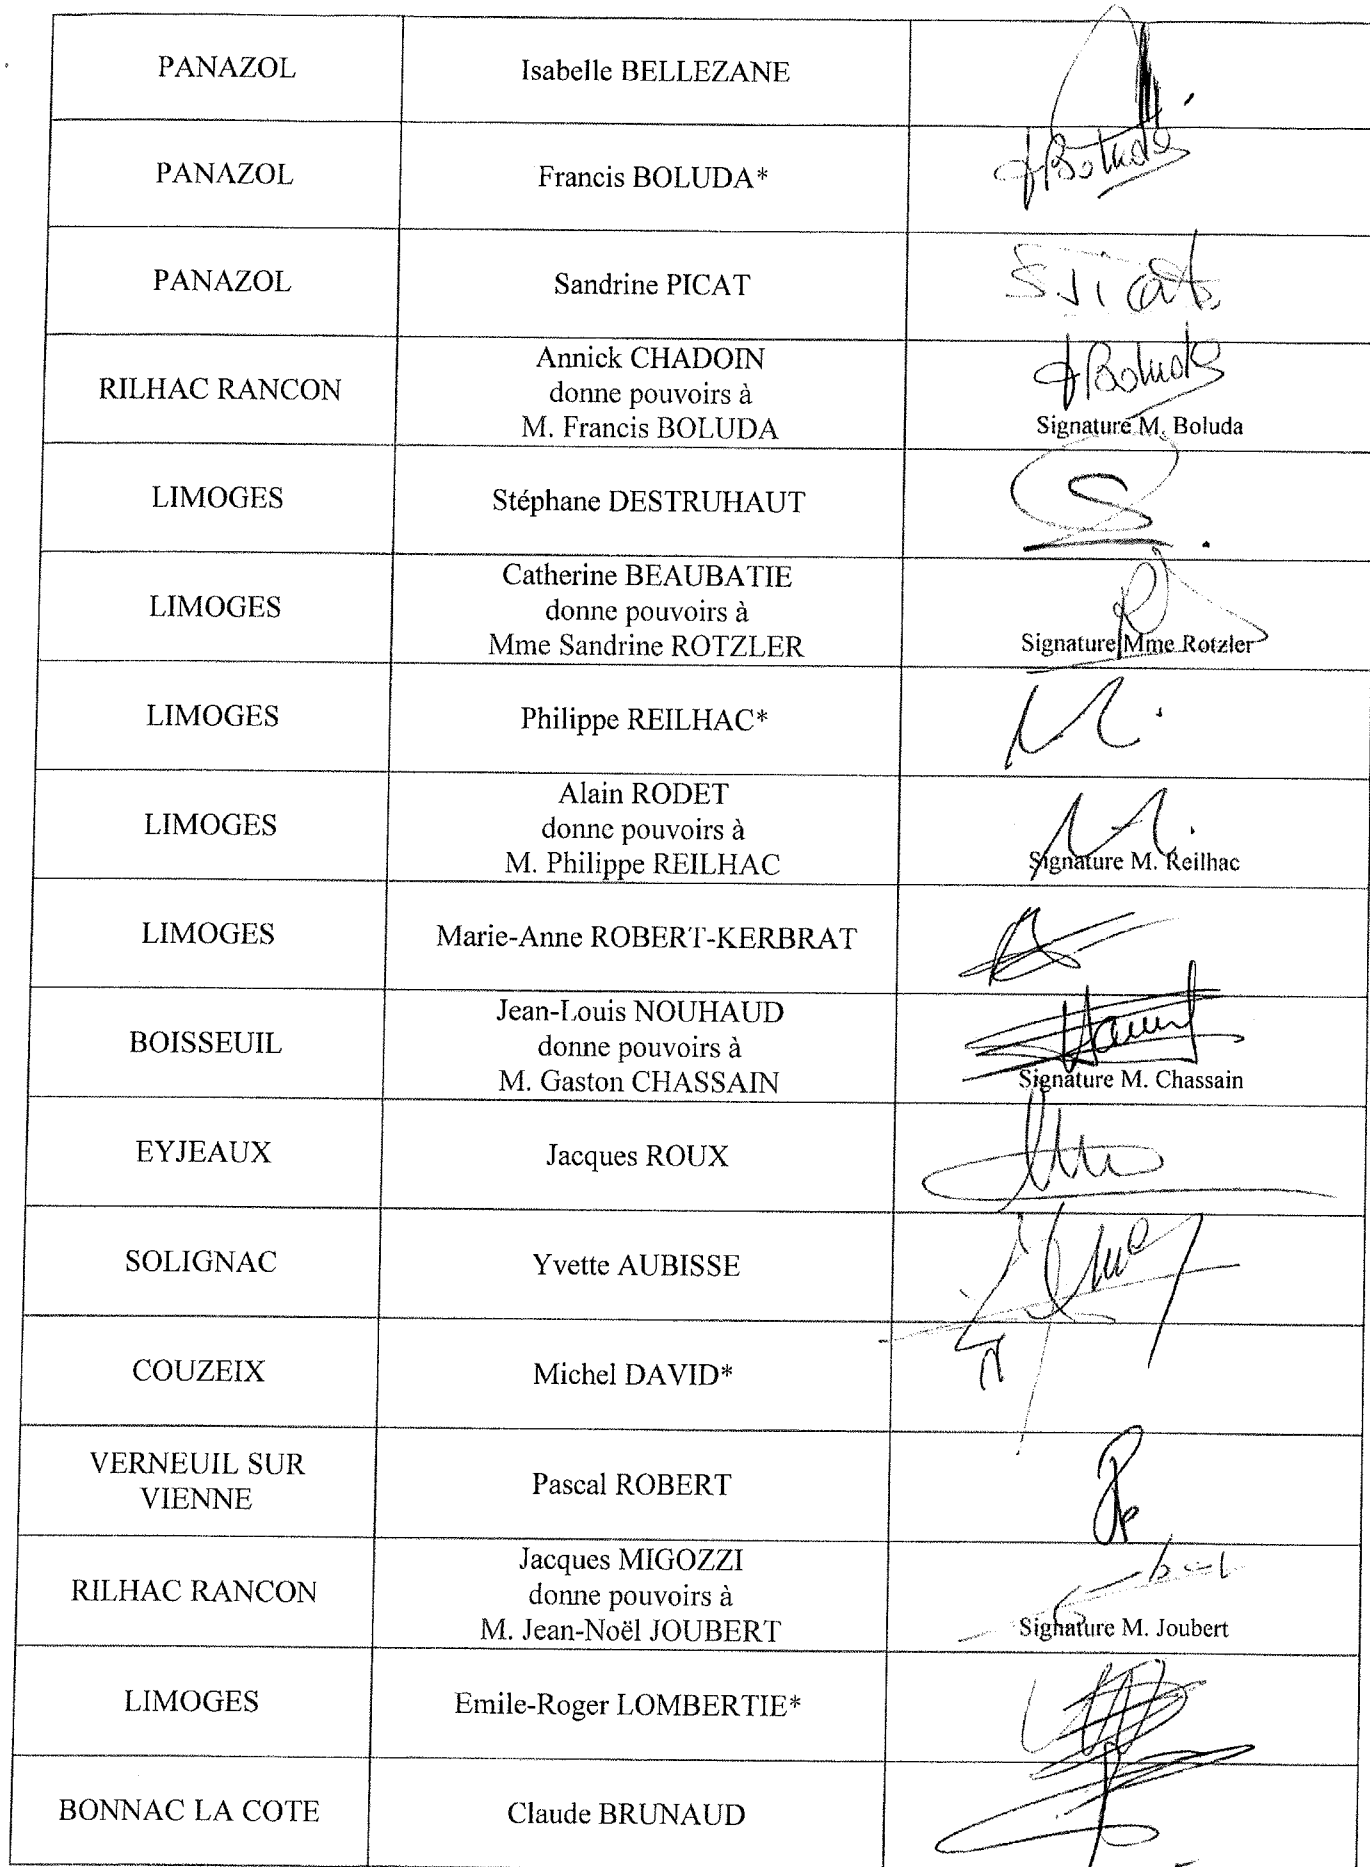 PANAZOL Isabelle BELLEZANE
PANAZOL Francis BOLUDA* f Boluda
PANAZOL Sandrine PICAT S Picat
RILHAC RANCON
Annick CHADOIN
donne pouvoirs à
M. Francis BOLUDA
f Boluda
Signature M. Boluda
LIMOGES Stéphane DESTRUHAUT
LIMOGES
Catherine BEAUBATIE
donne pouvoirs à
Mme Sandrine ROTZLER
Signature Mme Rotzler
LIMOGES Philippe REILHAC*
LIMOGES
Alain RODET
donne pouvoirs à
M. Philippe REILHAC
Signature M. Reilhac
LIMOGES Marie-Anne ROBERT-KERBRAT
BOISSEUIL
Jean-Louis NOUHAUD
donne pouvoirs à
M. Gaston CHASSAIN
Signature M. Chassain
EYJEAUX Jacques ROUX
SOLIGNAC Yvette AUBISSE
COUZEIX Michel DAVID*
VERNEUIL SUR
VIENNE
Pascal ROBERT
RILHAC RANCON
Jacques MIGOZZI
donne pouvoirs à
M. Jean-Noël JOUBERT
Signature M. Joubert
LIMOGES Emile-Roger LOMBERTIE*
BONNAC LA COTE Claude BRUNAUD